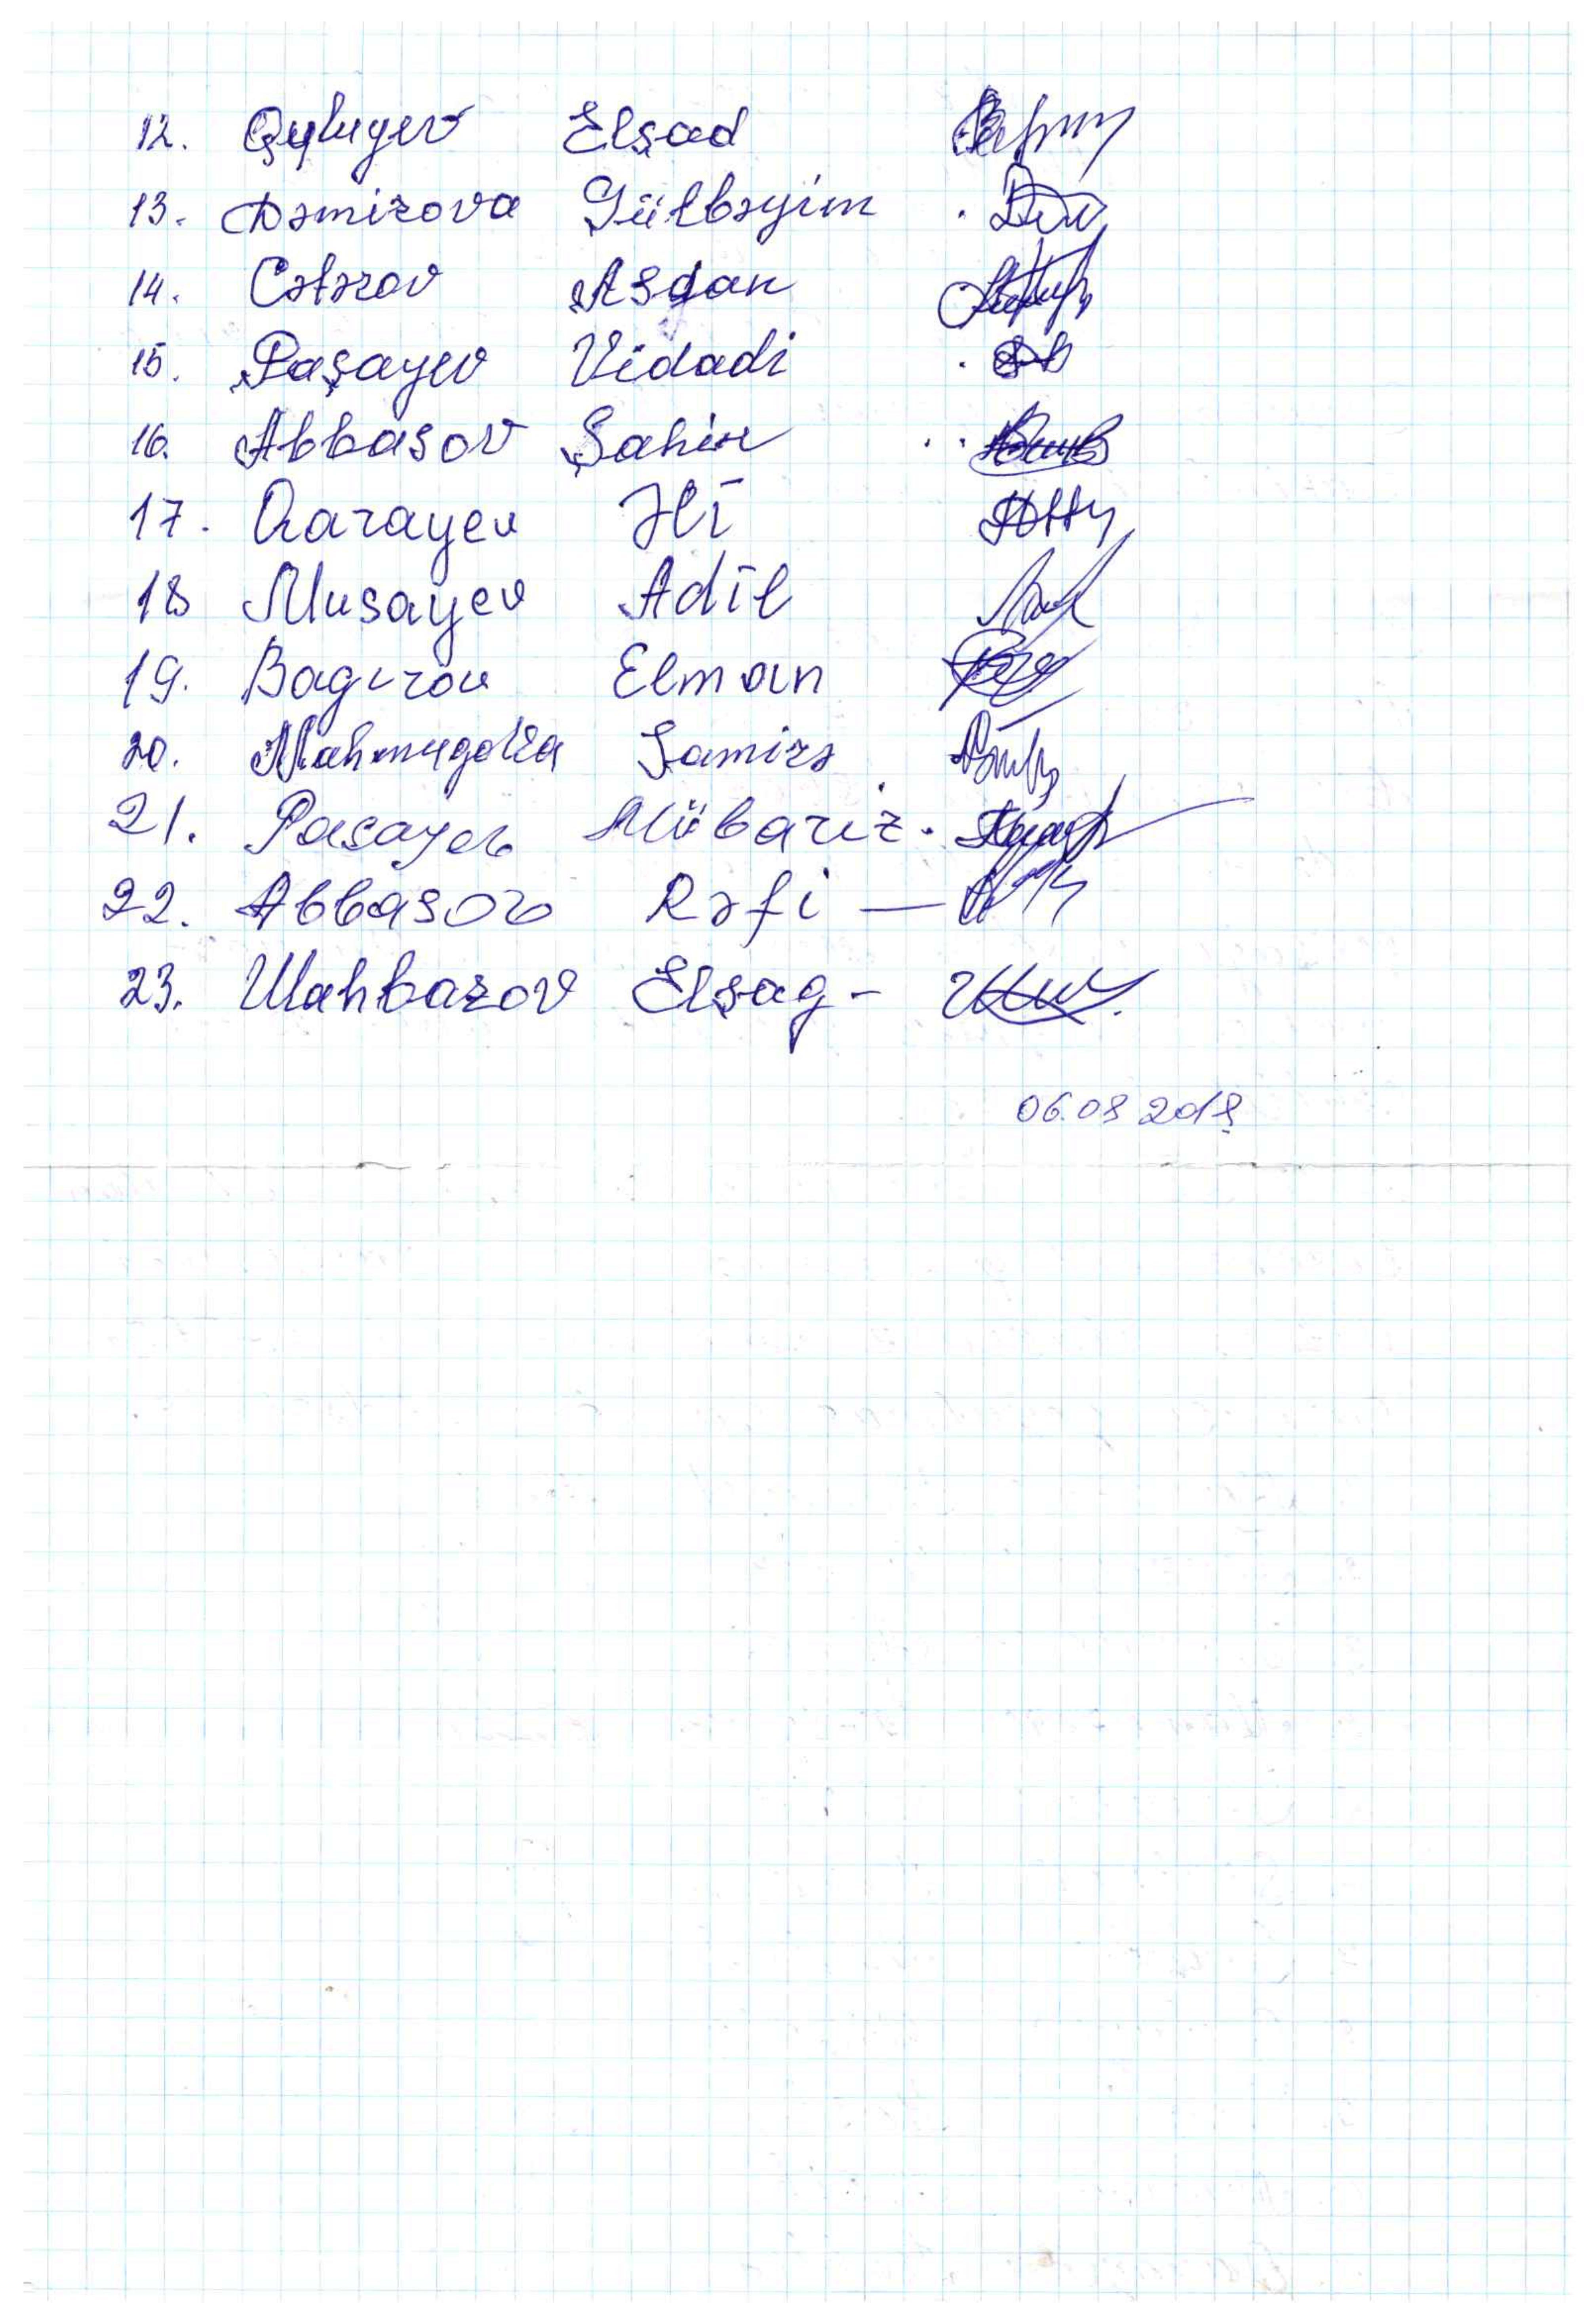 12. Quluyev Elşad
13. Dəmirova Gülbəyim
14. Cəfərov Asdan
15. Paşayev Vidadi
16. Abbasov Şahin
17. Qarayev Əli
18 Musayev Adil
19. Bagırov Elman
20. Mahmudova Samirə
21. Pasayev Mübariz.
22. Abbasov Rəfi —
23. Шahbazov Elşad -
06.08 2018